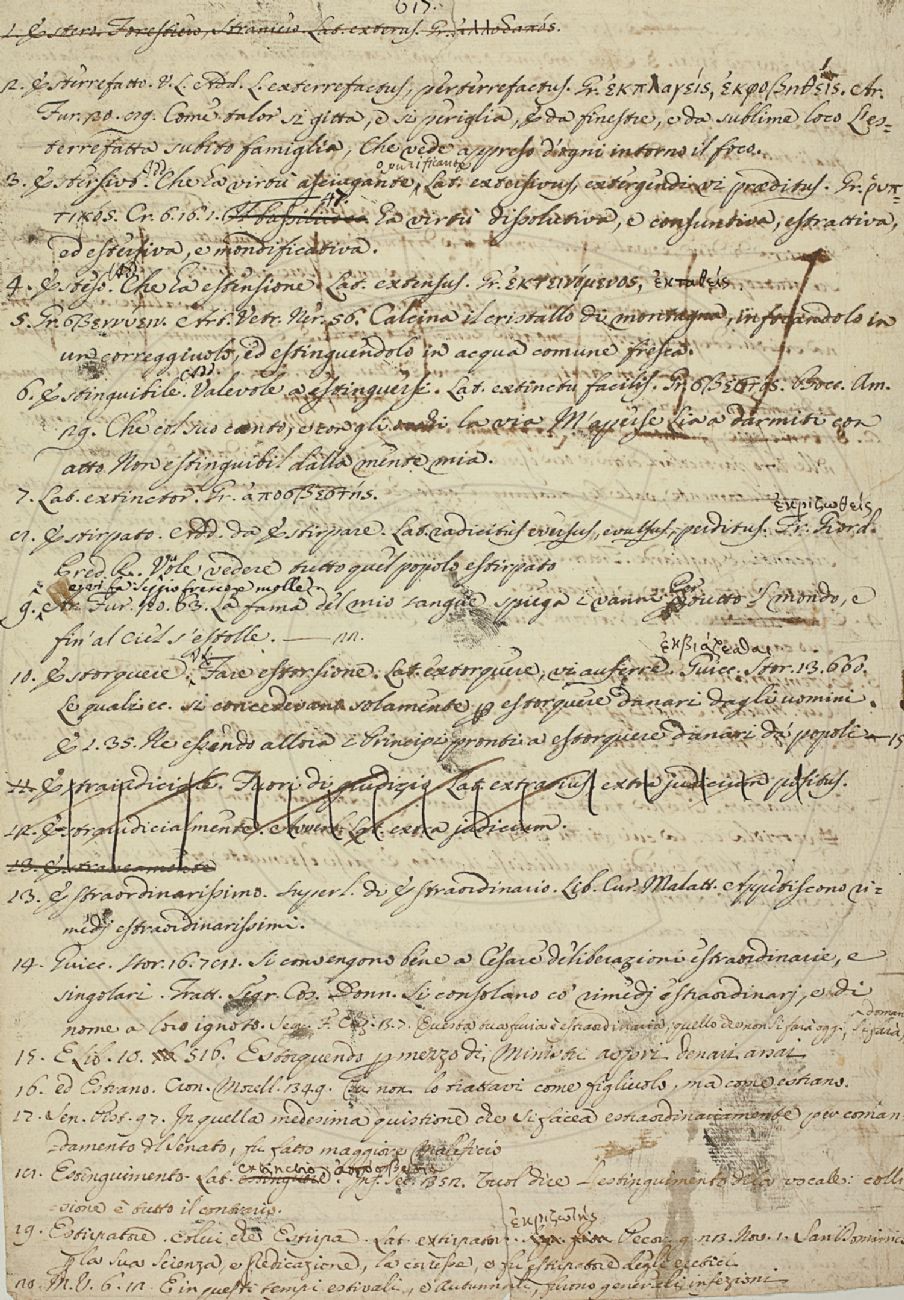 617.
1. Estero. Forestiero, Straniero. Lat. exterus. Gr. ἀλλοδαπός.
2. Esterrefatto. V. L. Add. L. exterrefactus, perterrefactus. Gr. ἐκπλαγείς, ἐκφοβηθείς. Ar.
Fur. 20. 89. Come talor si gitta, e si periglia, E da finestre, e da sublime loco L'es-
terrefatta subito famiglia, Che vede appreso d'ogni intorno il foco.
o purificante
3. Estersivo. Add. Che ha virtù asciugante, Lat. extersivus, extergendi vi præditus. Gr. ῥυπ-
τικός. Cr. 6. 16. 1. Ha virtù dissolutiva, e consuntiva, estrattiva,
ed estersiva, e mondificativa.
4. Esteso. Add. Che ha estensione. Lat. extensus. Gr. ἐκτεινόμενος, ἐκταθείς
5. Gr. σβεννύειν. Art. Vetr. Ner. 56. Calcina il cristallo di montagna, infocandolo in
un correggiuolo, ed estinguendolo in acqua comune fresca.
6. Estinguibile. Add. Valevole a estinguersi. Lat. extinctu facilis. Gr. σβεστός. Bocc. Am.
29. Che col suo canto, e con gli la via M'aperse Lia a darmiti con
atto Non estinguibil dalla mente mia.
7. Lat. extinctor. Gr. ἀποσβεστής.
ἐκριζωθείς
8. Estirpato. Add. da Estirpare. Lat. radicitus eversus, evulsus, perditus. Gr. Giord.
Pred. R. Vole vedere tutto quel popolo estirpato
9. Ar. Fur. 20. 63. La fama del mio sangue spiega i vanni Per tutto 'l mondo, e
fin' al Ciel s'estolle.
ἐκβιάζεσθαι
10. Estorquere. Fare estorsione. Lat. extorquere, vi auferre. Guicc. Stor. 13. 660.
Le quali ec. si concedevano solamente p estorquere danari dagli uomini.
E 2. 35. Ne essendo allora i Principi pronti a estorquere danari da' popoli — 15
11. Estraiudiciale. Fuori di giudizio. Lat. extrarius, extra judicium positus.
12. Estragiudicialmente. Avverb. Lat. extra judicium.
13.
13. Estraordinarissimo. Superl. di Estraordinario. Lib. Cur. Malatt. Appetiscono ri-
medj estraordinarissimi.
14. Guicc. Stor. 16. 788. Si convengono bene a Cesare deliberazioni estraordinarie, e
singolari. Tratt. Segr. Cos. Donn. Si consolano co' rimedj estraordinarj, e di
nome a loro ignoto. Sen. 13. 7. Questa tua furia è estraordinaria, quello che non si farà oggi, si farà domani
15. E Lib. 10. 516. Estorquendo p mezzo di Ministri aspri denari assai
16. ed Estrano. Cron. Morell. 349. E non lo trattavi come figliuolo, ma come estrano.
17. Sen. Pist. 97. In quella medesima quistione che si facea estraordinariamente per coman-
damento del Senato, fu fatto maggiore maleficio
18. Estinguimento. Lat. extinctio. 352. Quel dice L'estinguimento della vocale: colli-
sione è tutto il contrario.
ἐκριζωτής
19. Estirpatore. Colui che Estirpa. Lat. extirpator. Pecor. g. 23. Nov. 1. San Domenico
p la sua scienza, e predicazione, la corresse, e fu estirpatore degli eretici
20. M. V. 6. 12. E in questi tempi estivali, e autunnali, furono generali infezioni